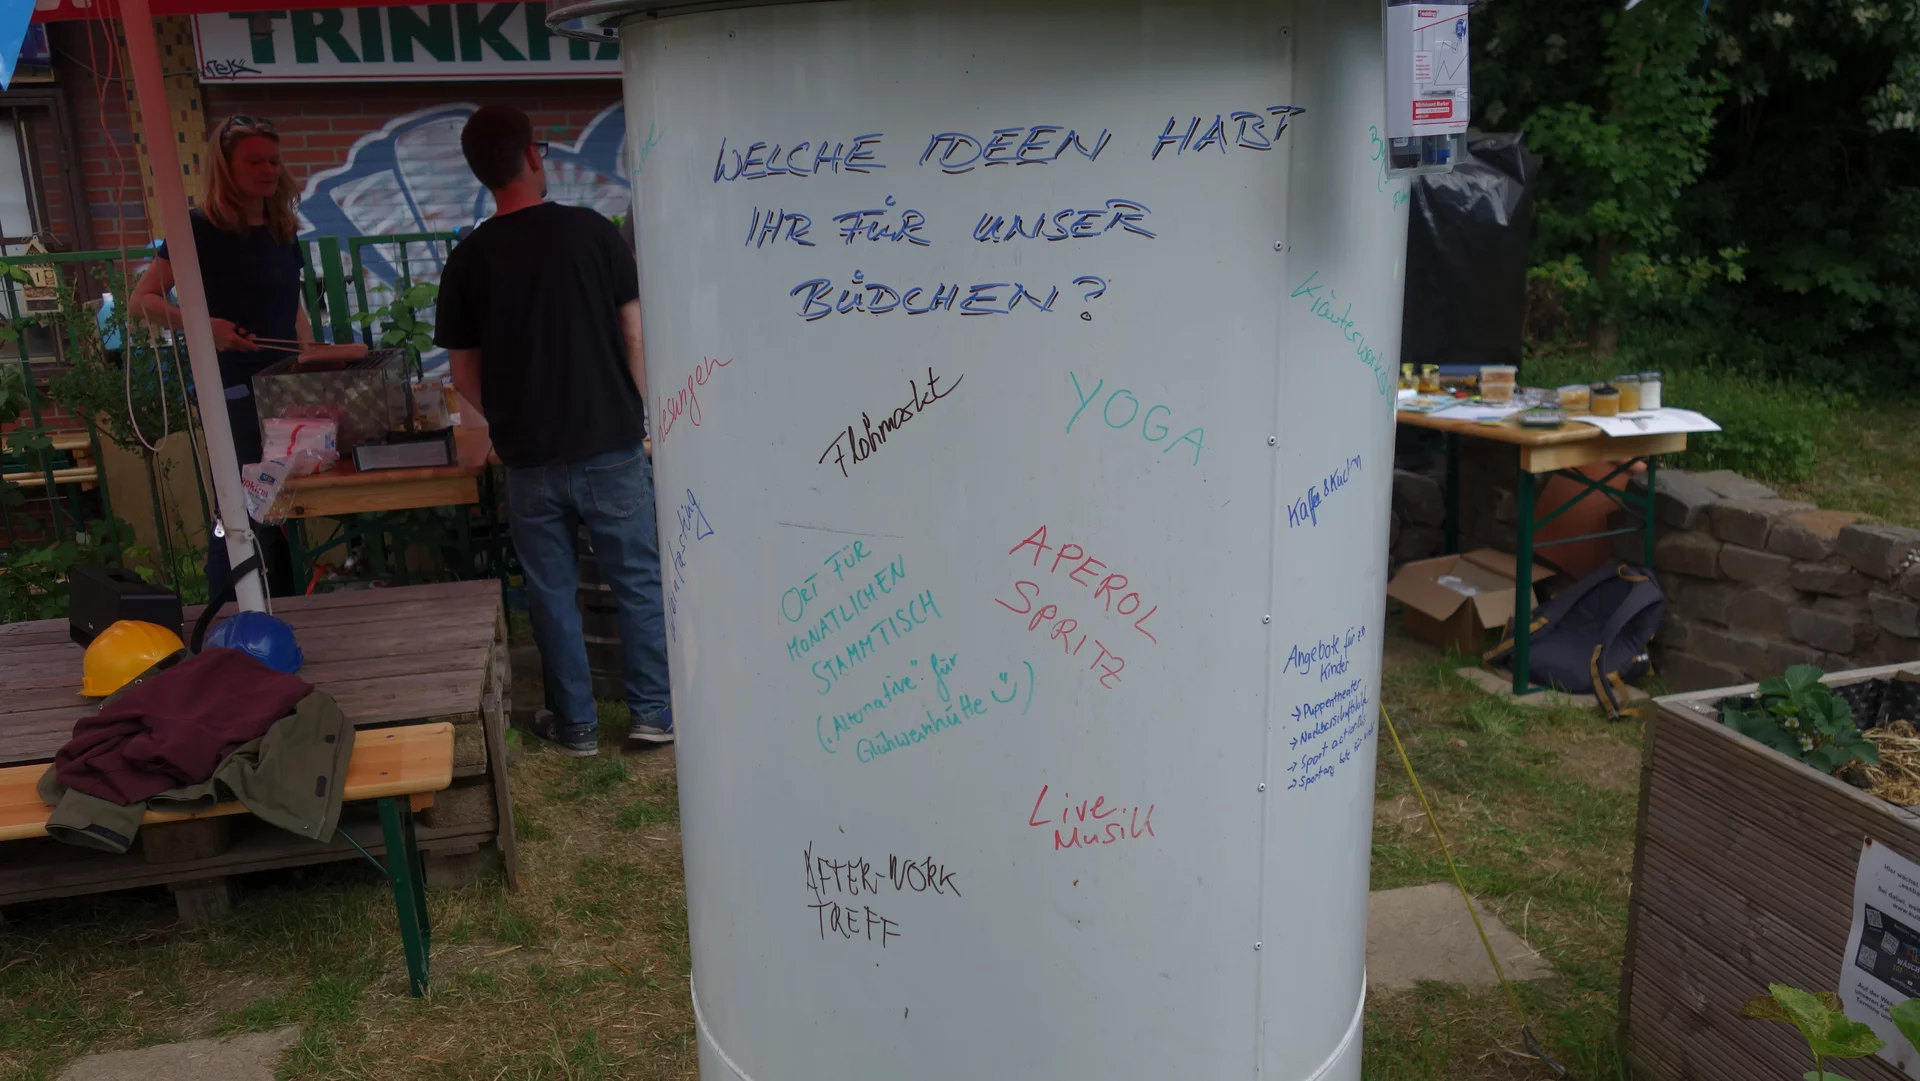 TRINKHA
WELCHE IDEEN HABT
IHR FÜR UNSER
BÜDCHEN?
Lesungen
Flohmarkt
YOGA
Kaffee & Kuchen
ORT FÜR
MONATLICHEN
STAMMTISCH
("Alternative" für
Glühweinhütte)
APEROL
SPRITZ
Angebote für
Kinder
→ Puppentheater
→ Sport
LIVE
MUSIK
AFTER-WORK
TREFF